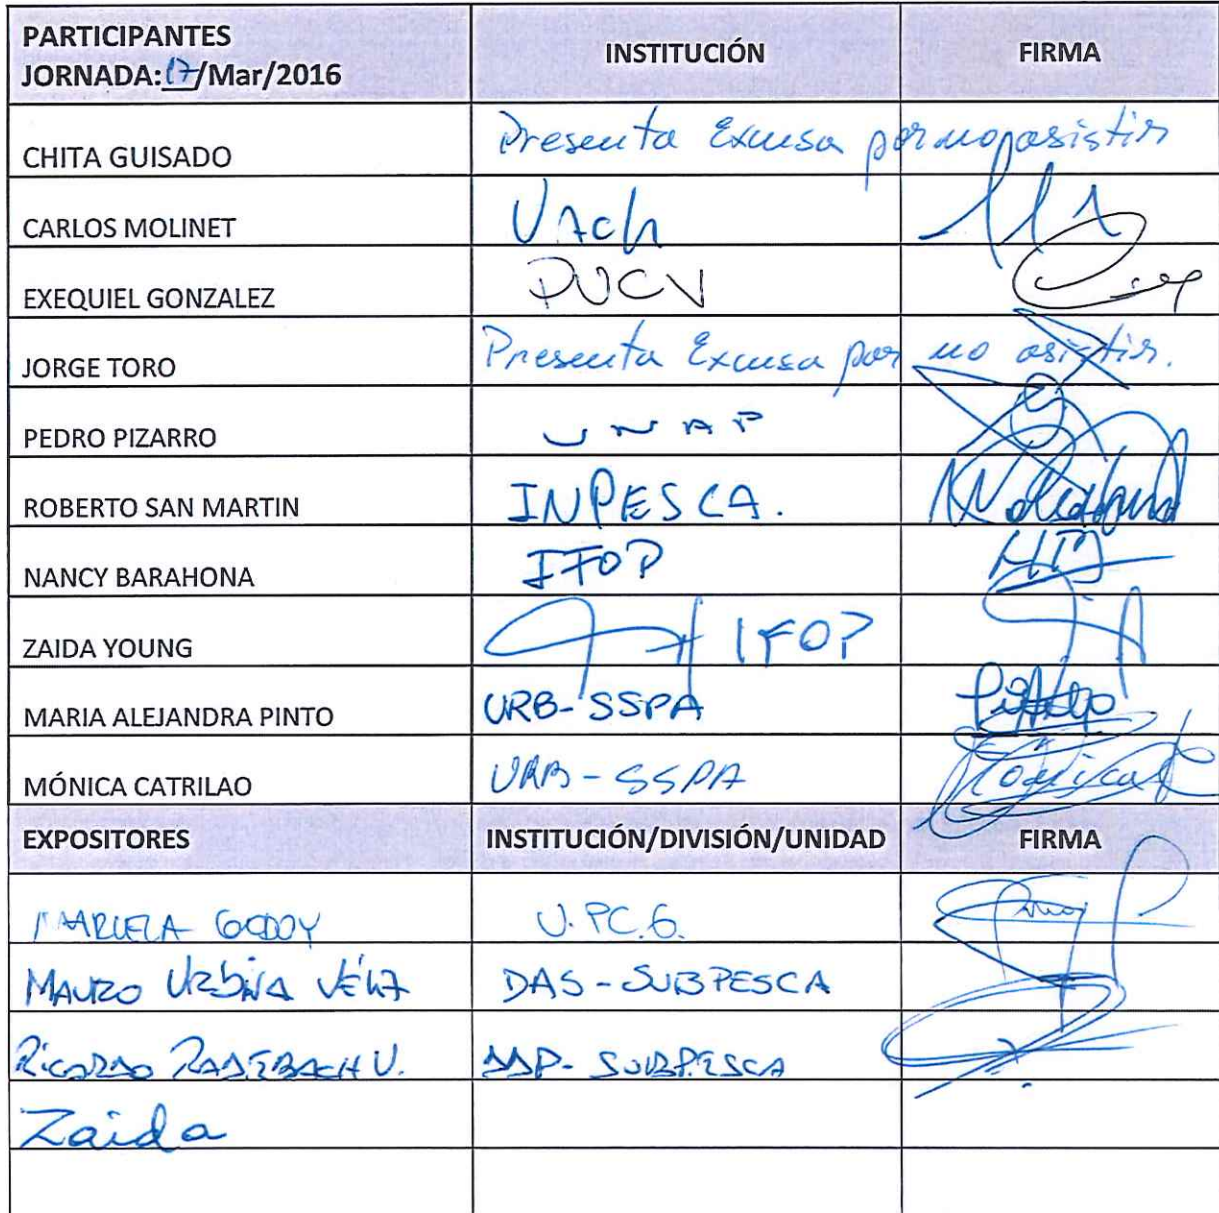 PARTICIPANTES
JORNADA: 17/Mar/2016 INSTITUCIÓN FIRMA
CHITA GUISADO Presenta Excusa por no asistir
CARLOS MOLINET UACh
EXEQUIEL GONZALEZ PUCV
JORGE TORO Presenta Excusa por no asistir.
PEDRO PIZARRO UNAP
ROBERTO SAN MARTIN INPESCA.
NANCY BARAHONA IFOP
ZAIDA YOUNG IFOP
MARIA ALEJANDRA PINTO URB-SSPA
MÓNICA CATRILAO URB-SSPA
EXPOSITORES INSTITUCIÓN/DIVISIÓN/UNIDAD FIRMA
MARIELA GODOY U.PC.G.
MAURO URBINA VÉLIZ DAS-SUBPESCA
RICARDO RADEBACH U. DDP-SUBPESCA
Zaida